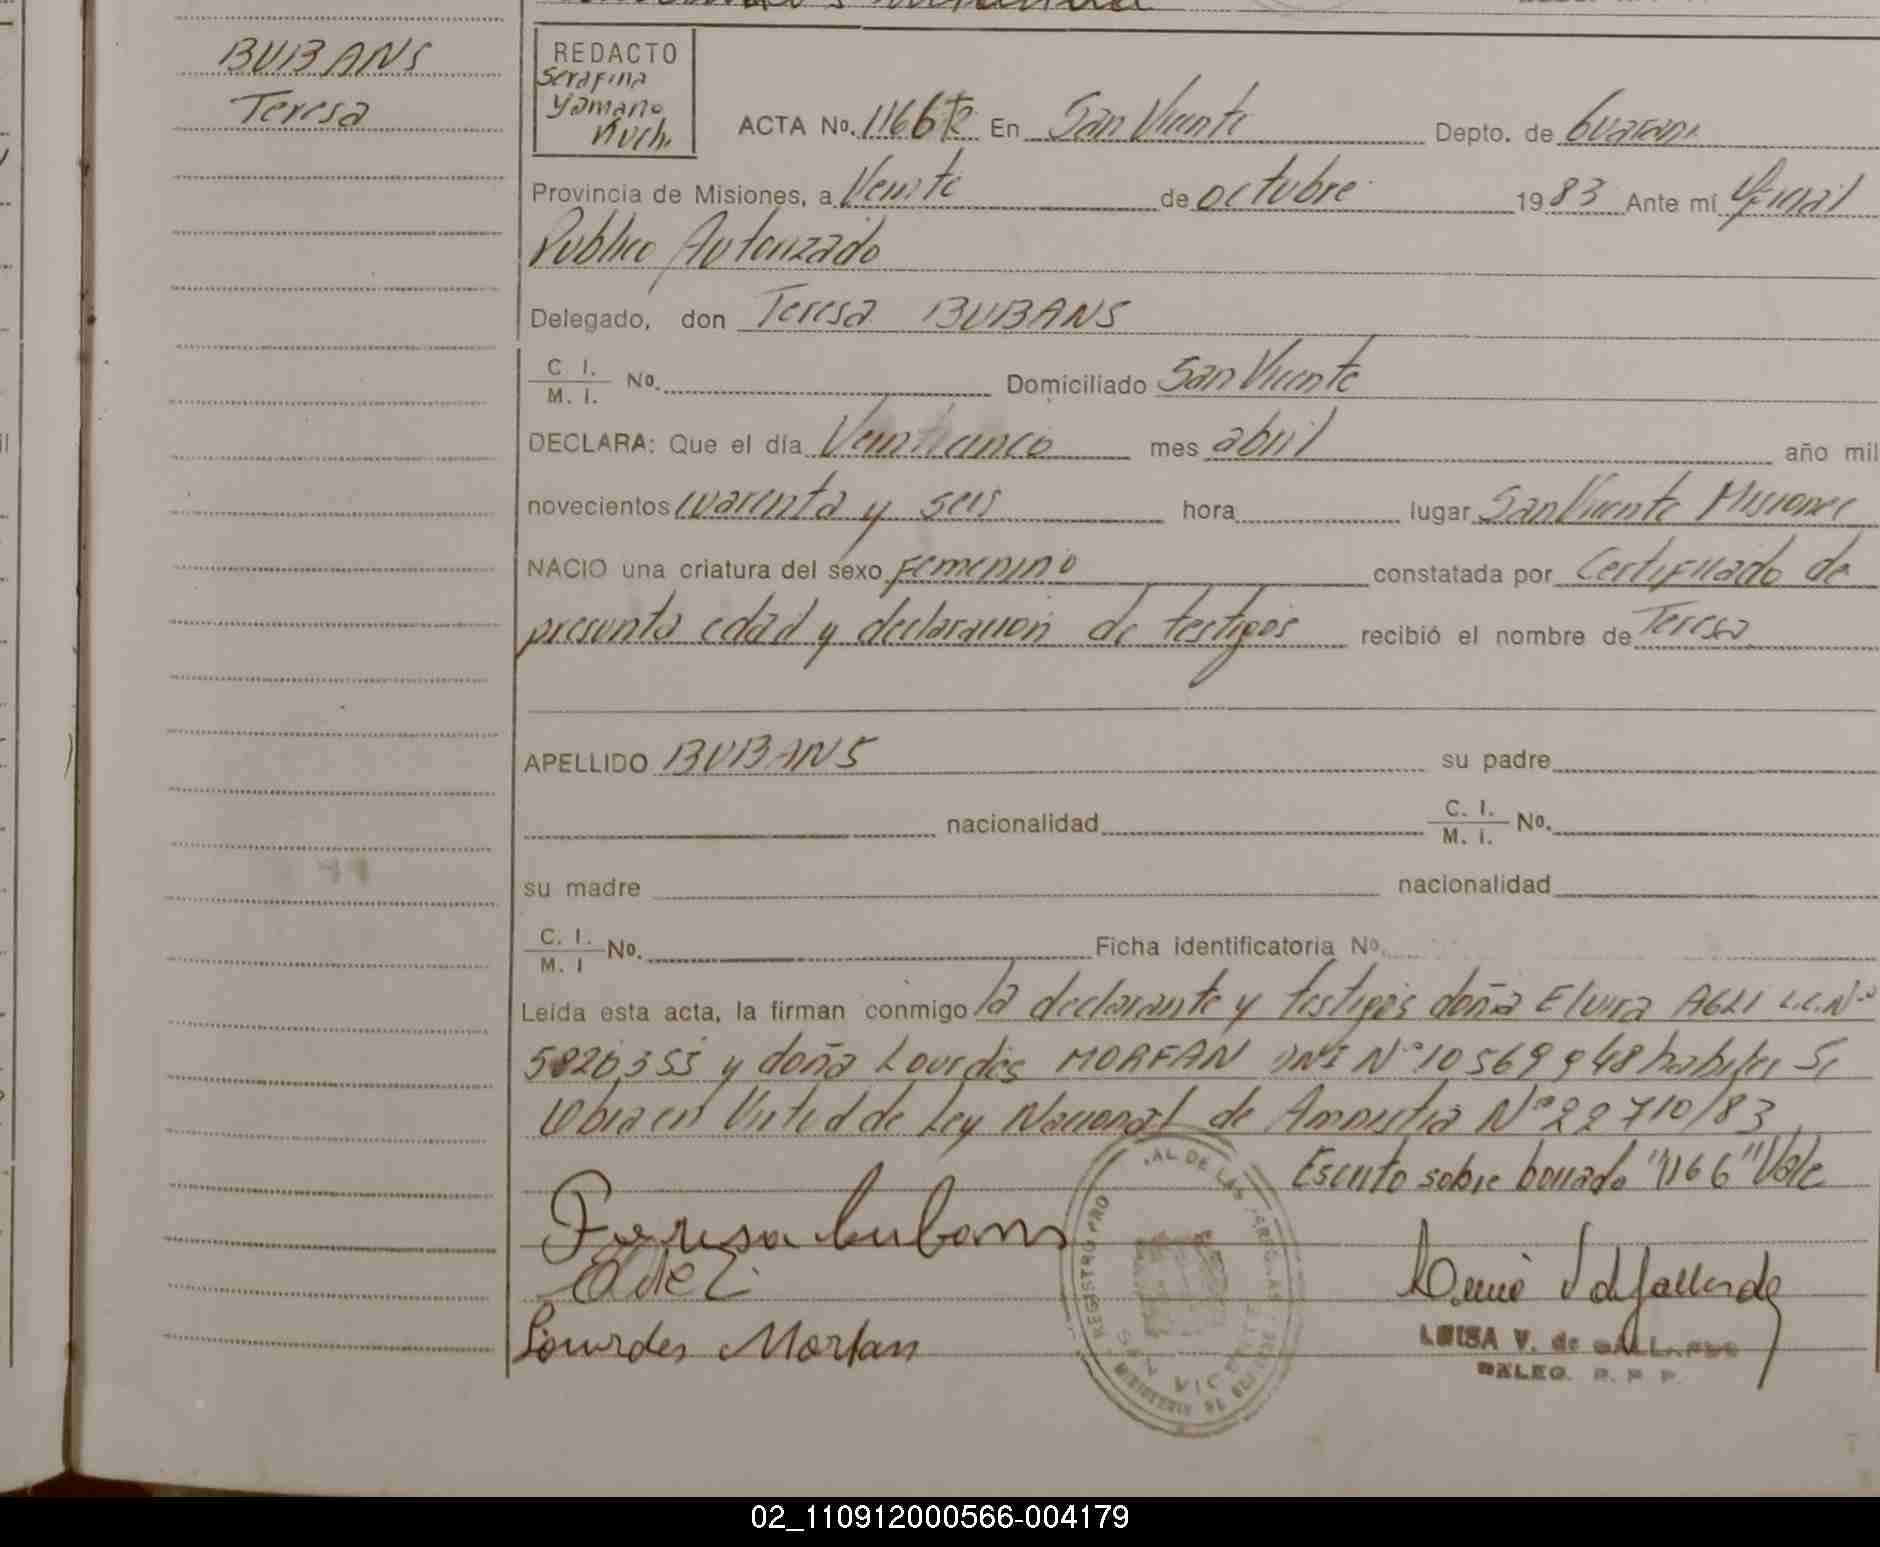 BUBANS
Teresa
REDACTO
Serafina
Yamano
ACTA No. 1166 En San Vicente Depto. de Guarani
Provincia de Misiones, a Veinte de octubre 1983 Ante mi Oficial
Publico Autorizado
Delegado, don Teresa BUBANS
C I. / M. I. No. Domiciliado San Vicente
DECLARA: Que el día Veinticinco mes abril año mil
novecientos cuarenta y seis hora lugar San Vicente Misiones
NACIO una criatura del sexo Femenino constatada por Certificado de
presunta edad y declaracion de testigos recibió el nombre de Teresa
APELLIDO BUBANS su padre
nacionalidad C. I. / M. I. No.
su madre nacionalidad
C. I. / M. I No. Ficha identificatoria No.
Leída esta acta, la firman conmigo la declarante y testigos doña Elvira AGLI L.C.Nº
5820353 y doña Lourdes MORFAN DNI Nº 10569948 habiles Se
labra en Virtud de Ley Nacional de Amnistia Nº 22710/83
Escrito sobre borrado "1166" Vale
Teresa bubans
Lourdes Morfan
LUISA V. de GALLARDO
DELEG. R. P. P.
REGISTRO PRO AL DE LAS
02_110912000566-004179